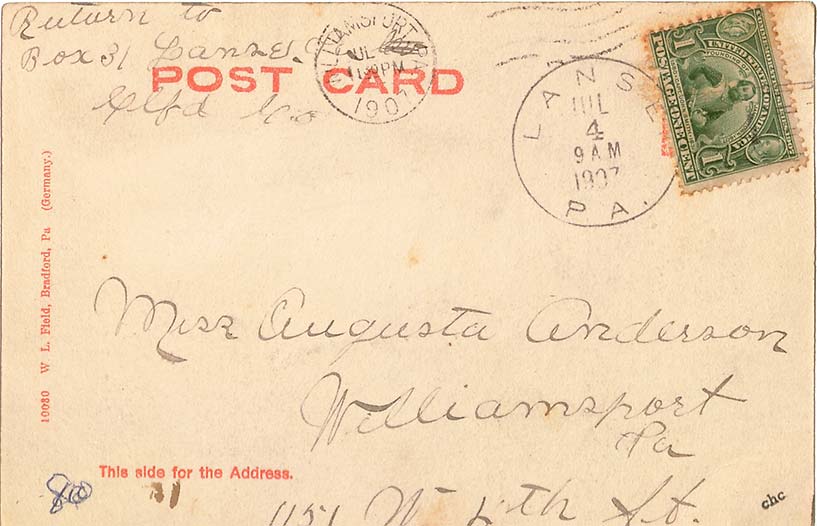 Return to
Box 31 Lanse.
POST CARD
Clfd Co
WILLIAMSPORT, PA.
JUL
1130PM
1907
LANSE
JUL
4
9 AM
1907
PA.
1 1
UNITED STATES OF AMERICA
10030 W L. Field, Bradford, Pa (Germany.)
Miss Augusta Anderson
Williamsport
Pa
This side for the Address.
1151 W 4th St.
chc